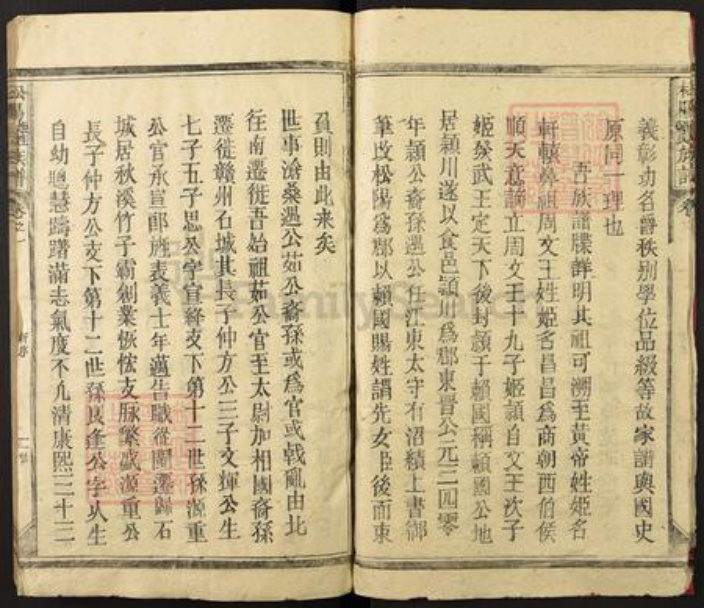 義彰功名爵秩別學位品綴等故家譜與國史
原同一理也
吾族譜牒詳明其祖可溯至黃帝姓姬名
軒轅鼻祖周文王姓姬名昌昌為商朝西伯侯
順天意謫立周文王十九子姬潁自文王次子
姬發武王定天下後封潁于賴國稱賴國公地
居潁川遂以食邑潁川為郡東晉公元三四零
年潁公裔孫遇公任江東太守有沼績上書御
筆改松陽為郡以賴國賜姓謂先女臣後而東
負則由此来矣
世事滄桑遇公茹公裔孫或為官或戟亂由北
往南遷徙吾始祖茹公官至太尉加相國裔孫
遷徙贛州石城其長子仲方公三子文輝公生
七子五子思公字宣絳支下第十二世孫源重
公官承宣郎旌表義士年邁告職從閩遷歸石
城居秋溪竹子霸創業恢恢支脉繁盛源重公
長子仲方公支下第十二世孫辰逢公字以生
自幼聰慧躊躇滿志氣度不凡清康熙三十三
卷之一
FamilySearch